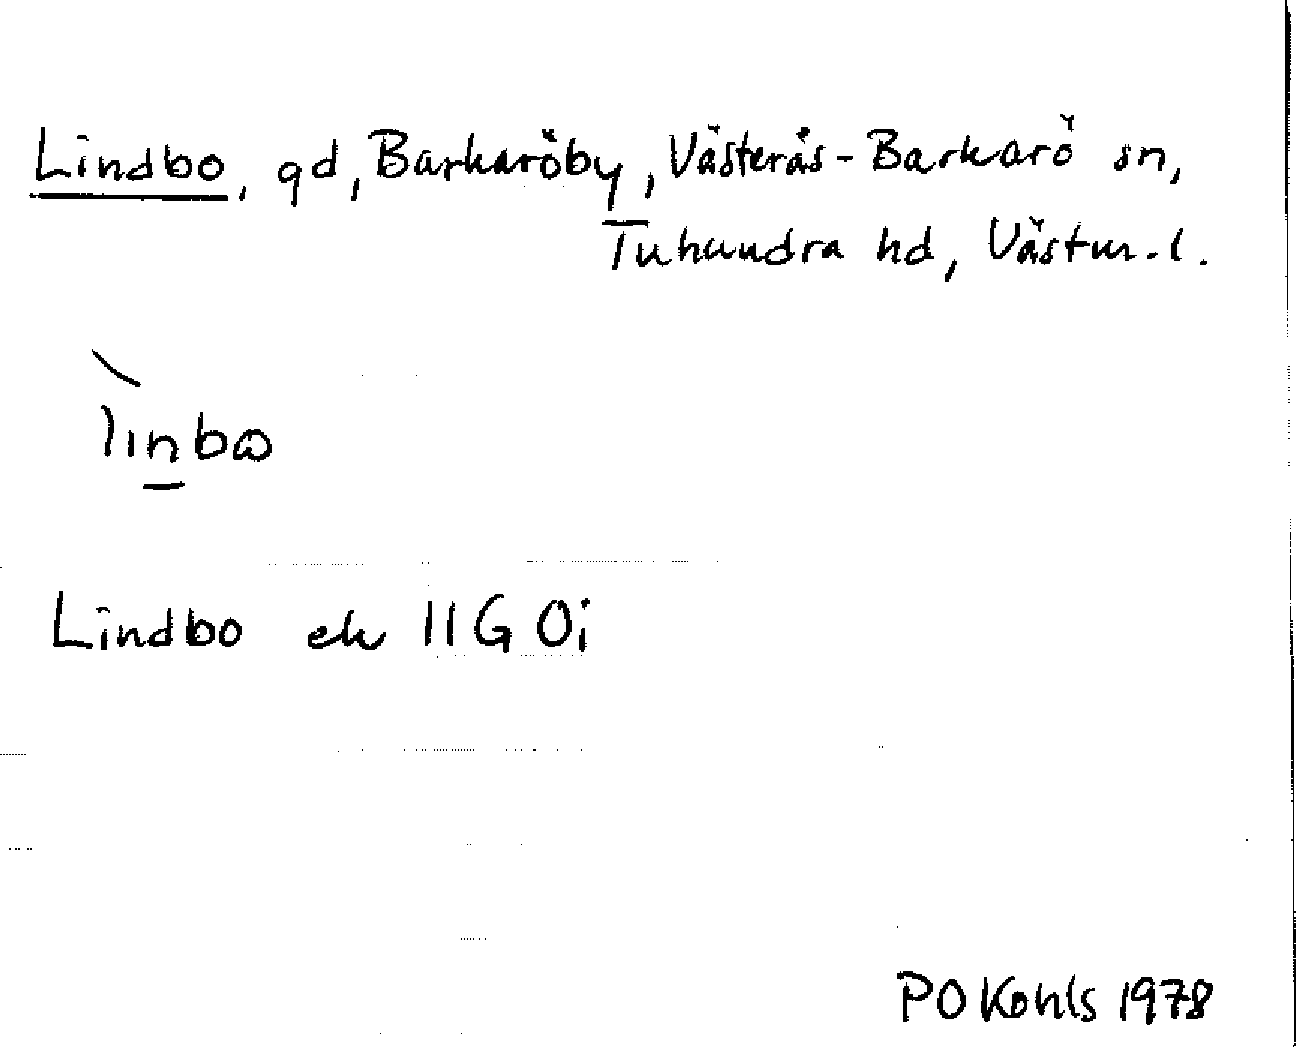 Lindbo, gd, Barkaröby, Västerås-Barkarö sn,
Tuhundra hd, Västm. l.
linbω
Lindbo ek 11G 0i
PO Kohls 1978